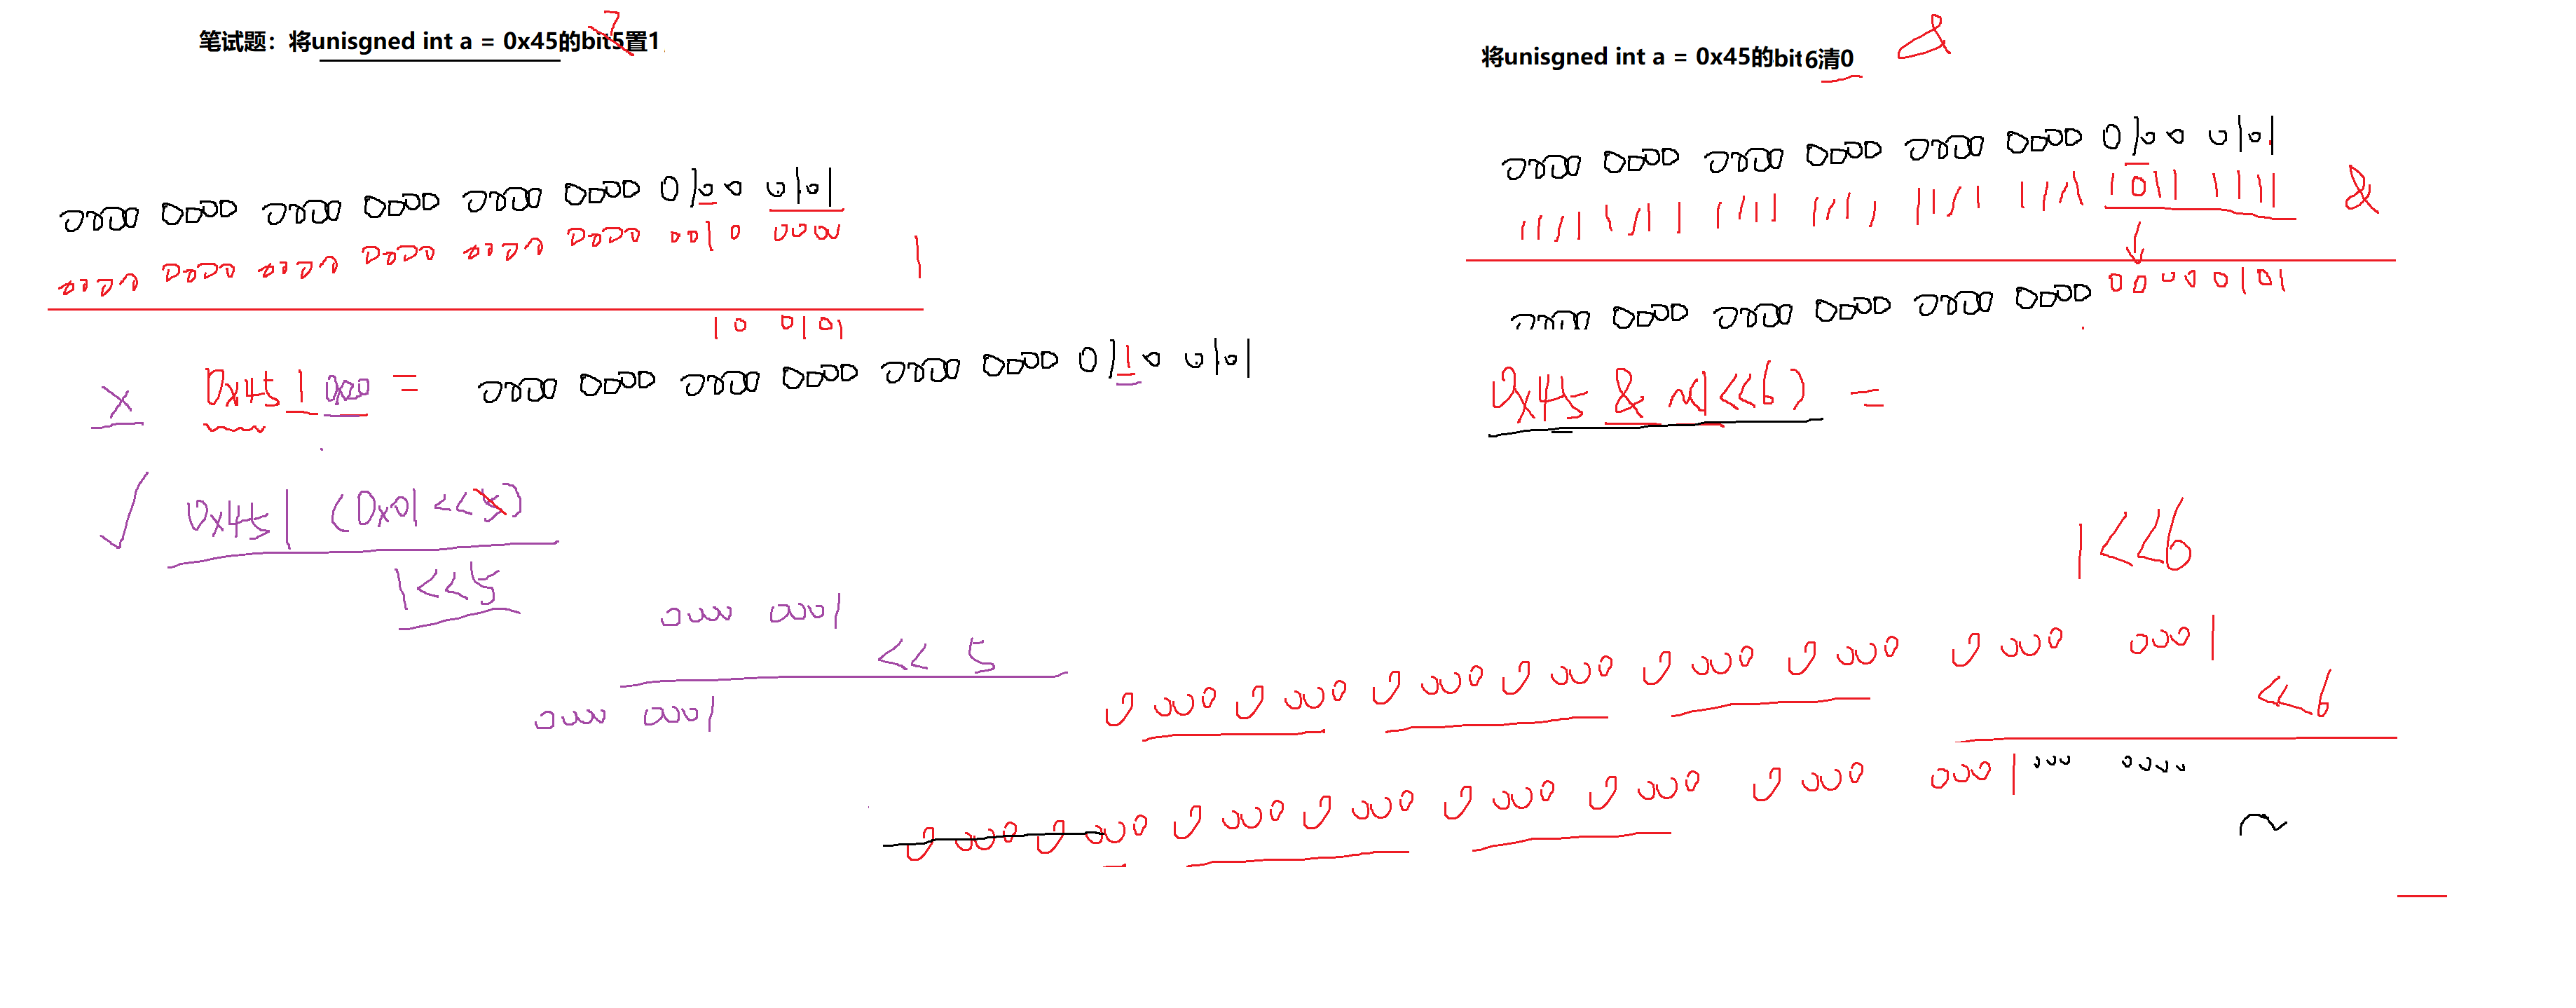 笔试题：将unisgned int a = 0x45的bit5置1
7
0000 0000 0000 0000 0000 0000 0100 0101
0000 0000 0000 0000 0000 0000 0010 0000 |
10 0101
× 0x45 | 0x20 = 0000 0000 0000 0000 0000 0000 0110 0101
√ 0x45 | (0x01<<5)
1<<5
0000 0001
<< 5
0000 0001
将unisgned int a = 0x45的bit6清0
&
0000 0000 0000 0000 0000 0000 0100 0101
1111 1111 1111 1111 1111 1111 1011 1111 &
0000 0000 0000 0000 0000 0000 0000 0101
0x45 & ~(1<<6) =
1<<6
0 000 0 000 0 000 0 000 0 000 0 000 0 000 0001
<<6
0 000 0 000 0 000 0 000 0 000 0 000 0 000 0001 000 0000
~